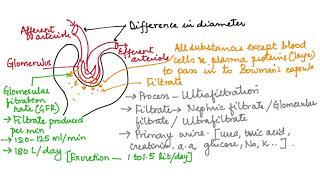 Difference in diameter
Afferent
arteriole
Efferent
arteriole
Glomerulus
All substances except blood
cells & plasma proteins (large)
to pass in to Bowman's capsule
Filtrate
Glomerular
filtration
rate (GFR)
→ Filtrate
produced
per min
→ 120-125 ml/min
→ 180 L/day
[Excretion — 1 to 1.5 lit/day]
→ Process - Ultrafiltration
→ Filtrate → Nephric filtrate / Glomerular
filtrate / Ultrafiltrate
→ Primary urine. [urea, uric acid,
creatinine, a.a, glucose, Na, K...].